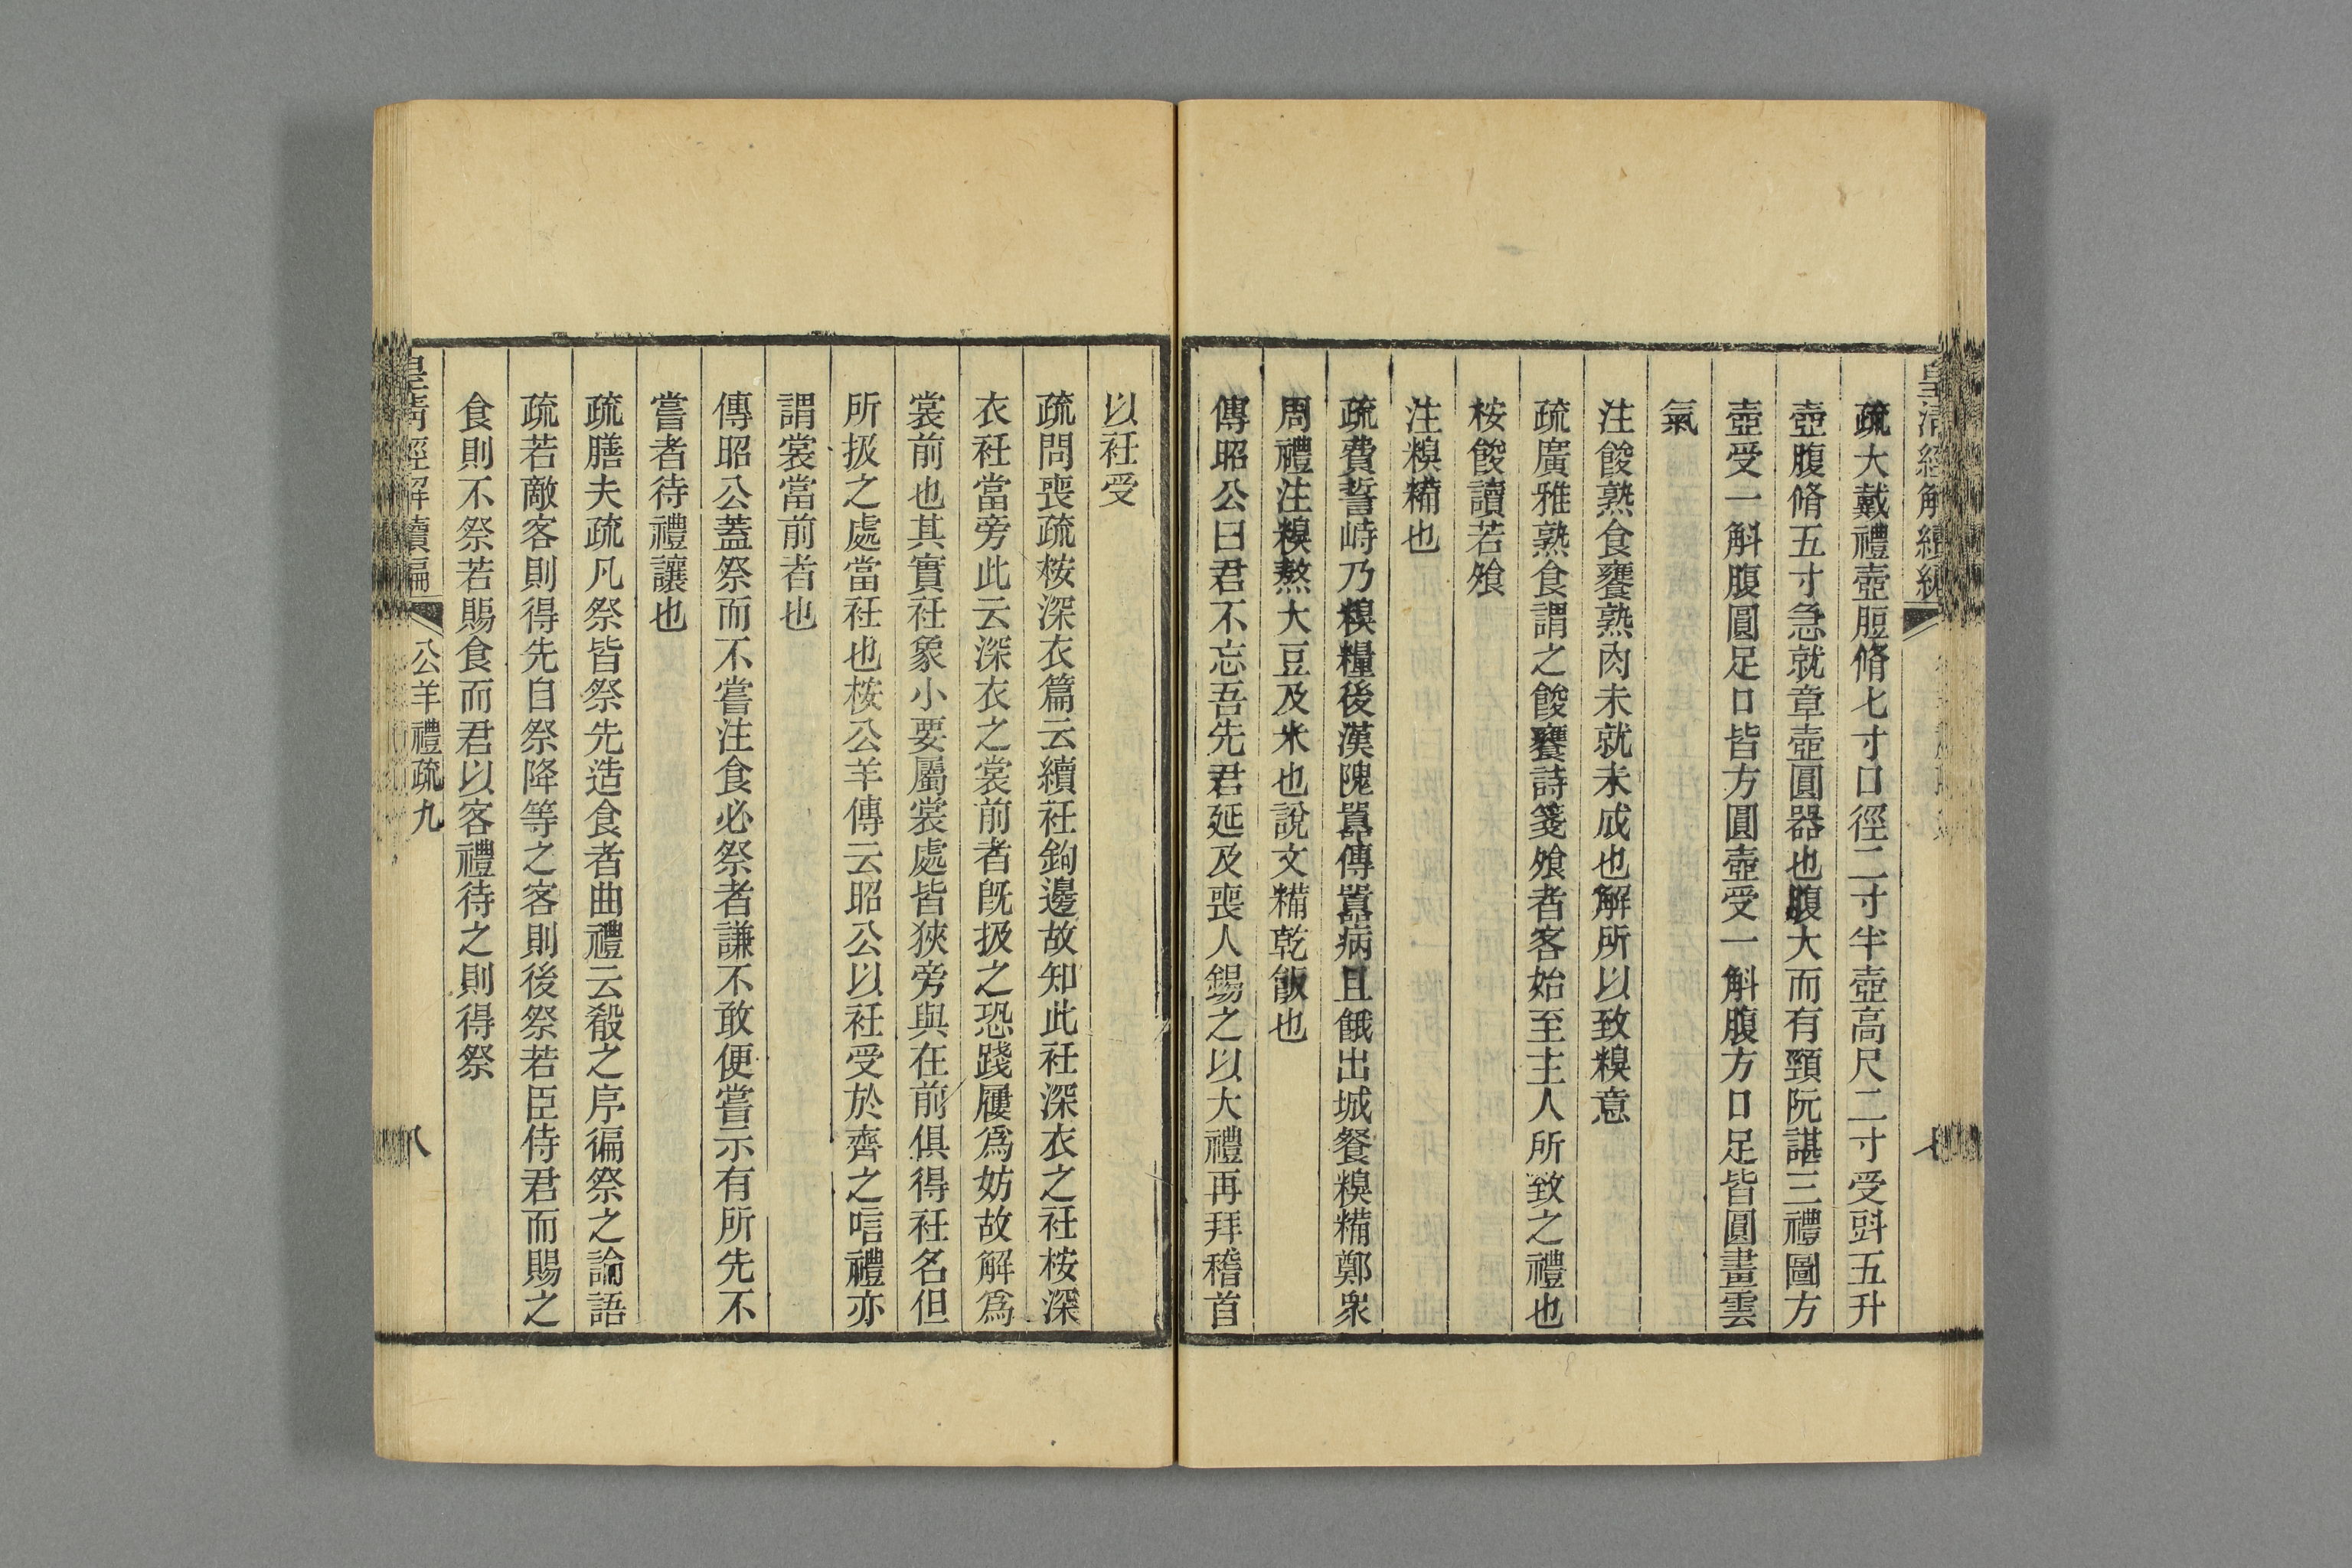 皇清經解續編
七
疏大戴禮壺脰脩七寸口徑二寸半壺高尺二寸受斗五升
壺腹脩五寸急就章壺圓器也腹大而有頸阮諶三禮圖方
壺受一斛腹圓足口皆方圓壺受一斛腹方口足皆圓畫雲
氣
注餕熟食饔熟肉未就未成也解所以致糗意
疏廣雅熟食謂之餕饔詩箋飧者客始至主人所致之禮也
桉餕讀若飧
注糗糒也
疏費誓峙乃糗糧後漢隗囂傳囂病且餓出城餐糗糒鄭衆
周禮注糗熬大豆及米也說文糒乾飯也
傳昭公曰君不忘吾先君延及喪人錫之以大禮再拜稽首
以衽受
疏問喪疏桉深衣篇云續衽鉤邊故知此衽深衣之衽桉深
衣衽當旁此云深衣之裳前者旣扱之恐踐屨爲妨故解爲
裳前也其實衽象小要屬裳處皆狹旁與在前俱得衽名但
所扱之處當衽也桉公羊傳云昭公以衽受於齊之唁禮亦
謂裳當前者也
傳昭公蓋祭而不嘗注食必祭者謙不敢便嘗示有所先不
嘗者待禮讓也
疏膳夫疏凡祭皆祭先造食者曲禮云殽之序徧祭之論語
疏若敵客則得先自祭降等之客則後祭若臣侍君而賜之
食則不祭若賜食而君以客禮待之則得祭
皇清經解續編
公羊禮疏九
八